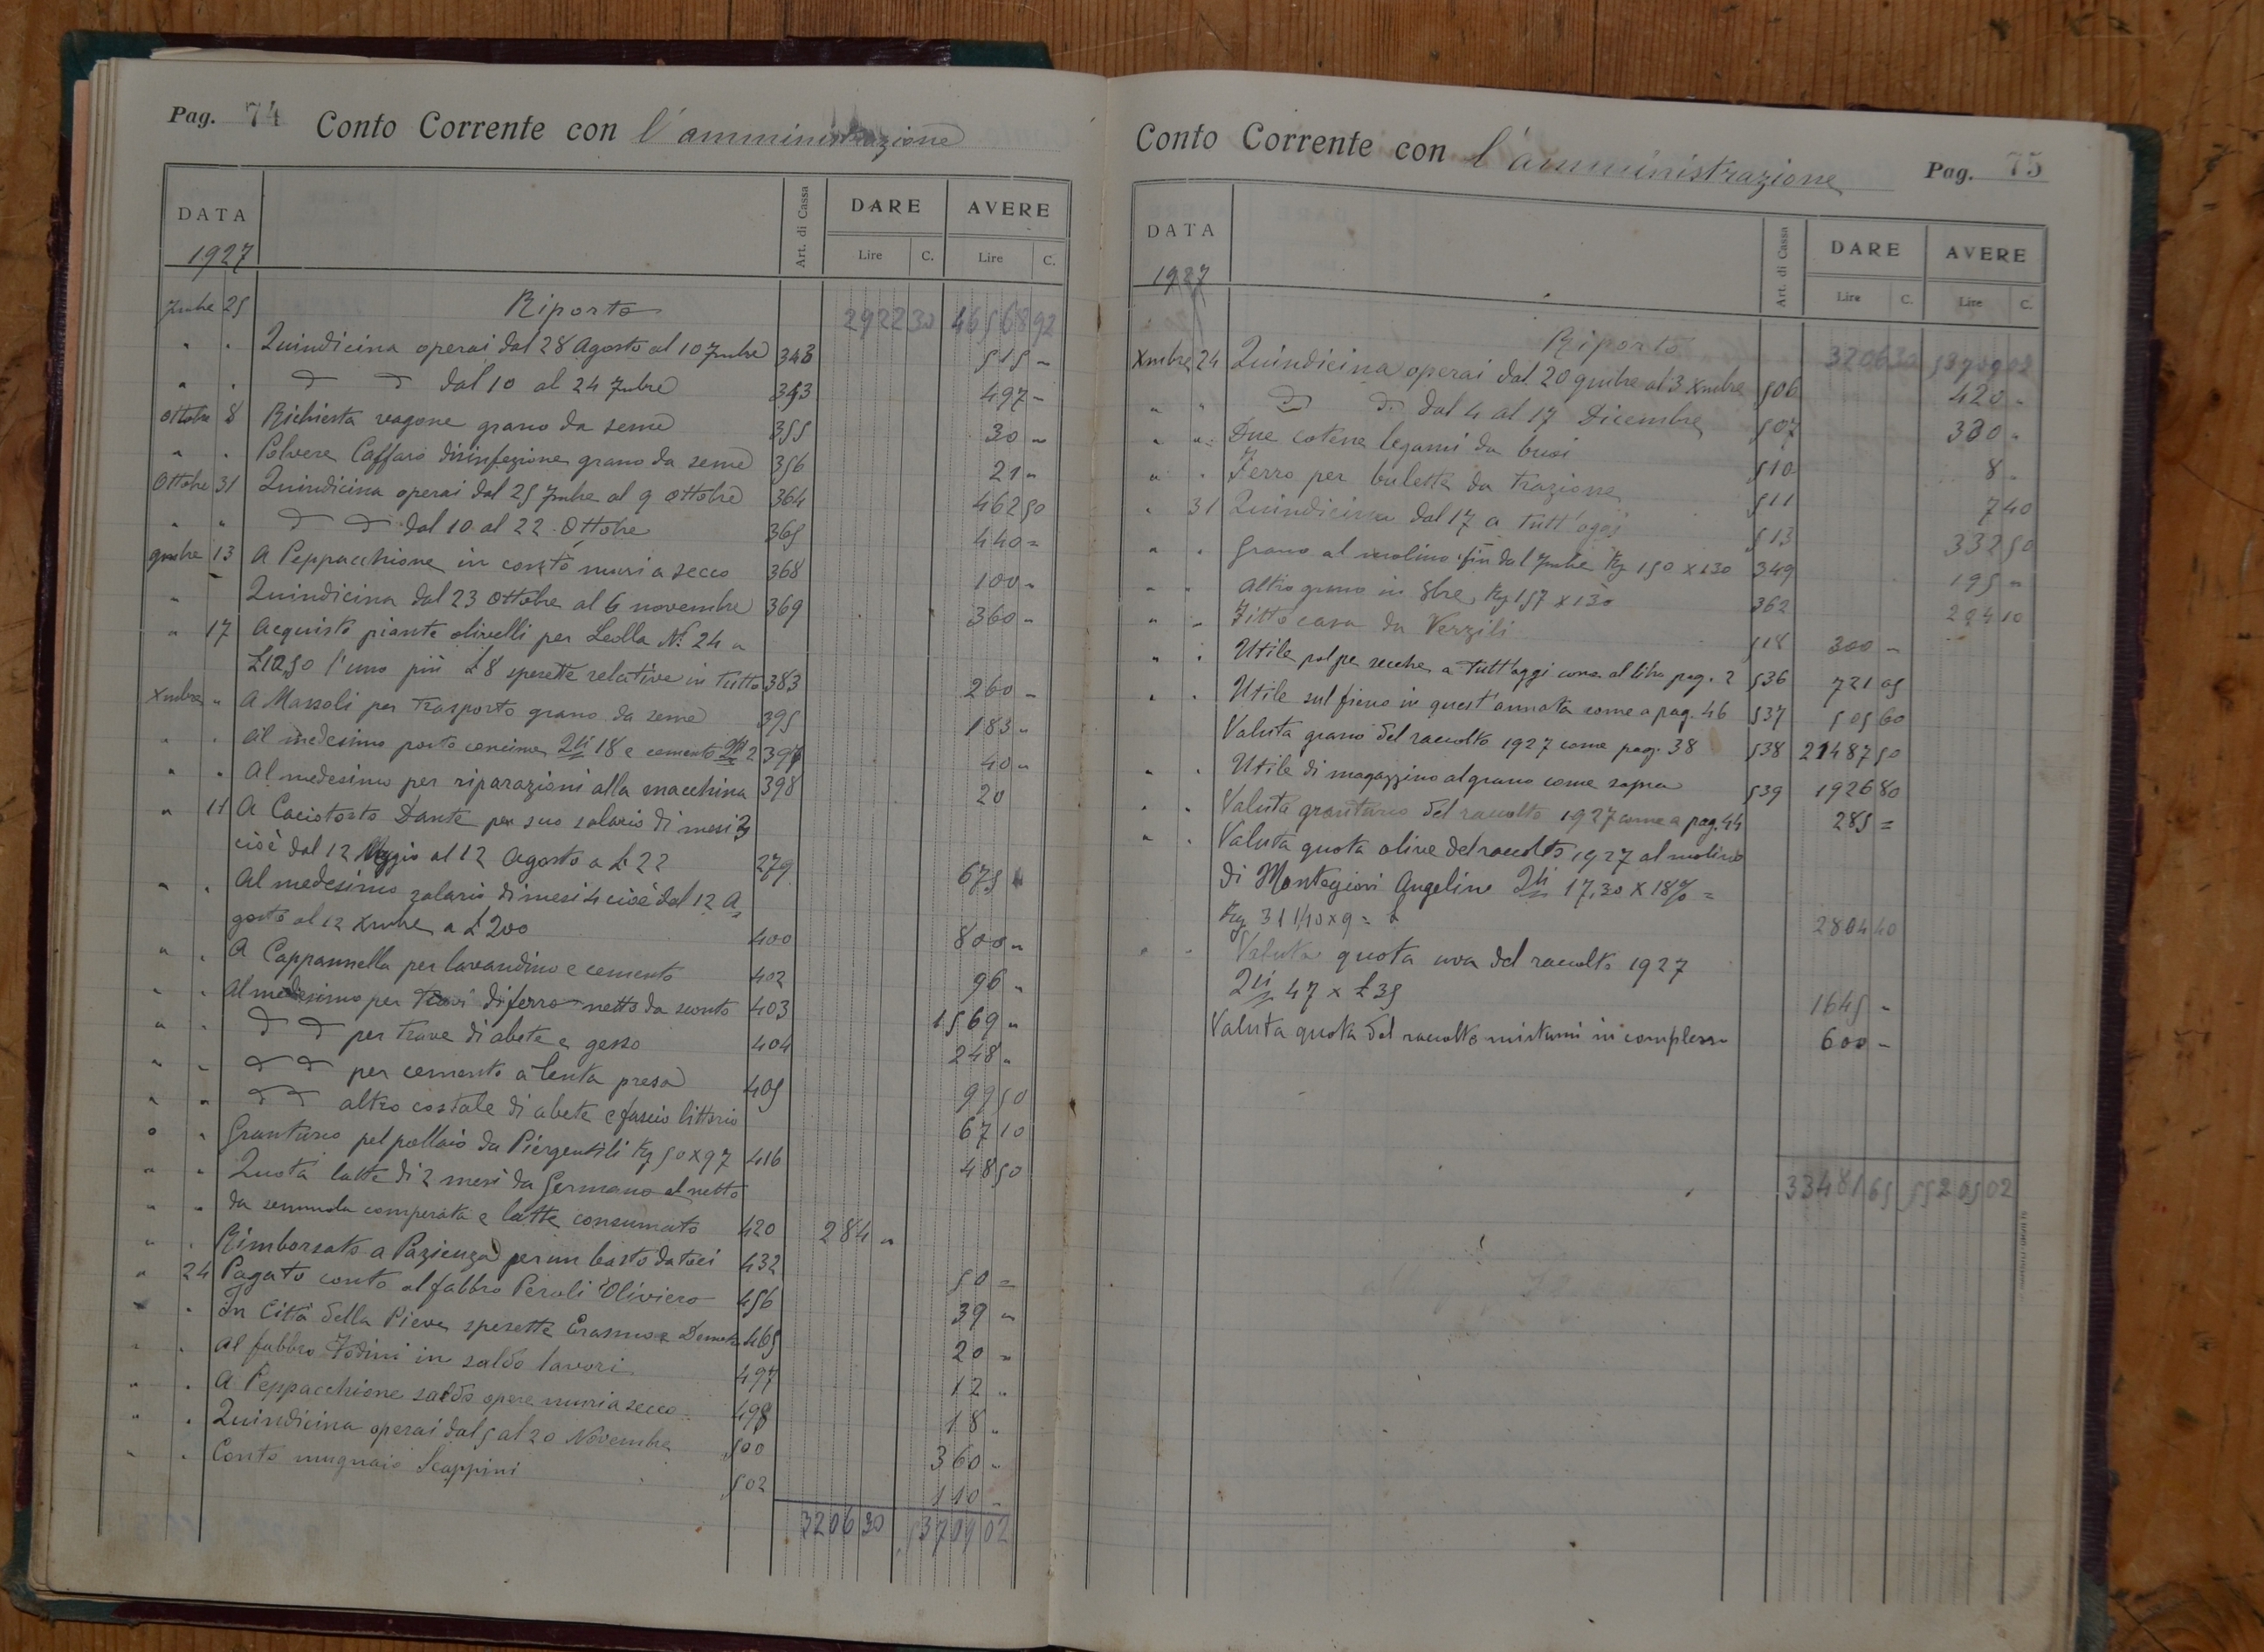 Pag. 74 Conto Corrente con l'amministrazione
DATA Art. di Cassa DARE AVERE
1927 Lire C. Lire C.
7mbre 25 Riporto 2922 30 46568 92
" " Quindicina operai dal 28 Agosto al 10 7mbre 343 515 -
" " D D dal 10 al 24 7mbre 353 497 -
Ottobre 8 Richiesta vagone grano da seme 355 30 "
" " Polvere Caffaro disinfezione grano da seme 356 21 "
Ottobre 31 Quindicina operai dal 25 7mbre al 9 Ottobre 364 462 50
" " D D dal 10 al 22 Ottobre 365 440 =
9mbre 13 A Peppacchione in conto muri a secco 368 100 -
" Quindicina dal 23 Ottobre al 6 novembre 369 360 -
" 17 Acquisto piante olivelli per Leolla N° 24 a
£ 10,50 l'uno più £ 8 spesette relative in tutto 383 260 -
Xmbre " A Massoli per trasporto grano da seme 395 183 "
" " Al medesimo porto concime Qli 18 e cemento Qli 2 397 40 "
" " Al medesimo per riparazioni alla macchina 398 20
" 11 A Caciotosto Dante per suo salario di mesi 3
cioè dal 12 Maggio al 12 Agosto a £ 22 279 675
" " Al medesimo salario di mesi 4 cioè dal 12 A
gosto al 12 Xmbre a £ 200 400 800 "
" " A Cappannella per lavandino e cemento 402 96 "
" " Al medesimo per travi di ferro netto da sconto 403 1569 "
" " D D per trave di abete e gesso 404 248 "
" " D D per cemento a lenta presa 405 99 50
" " D D altro costale di abete e fascio littorio 67 10
" " Granturco pel pollaio da Piergentili Kg 50 x 97 416 48 50
" " Quota latte di 2 mesi da Germano al netto
" " da semmola comperata e latte consumato 420 284 "
" " Rimborsato a Pazienza per un basto da toci 432 50 =
" 24 Pagato conto al fabbro Peroli Oliviero 456 39 "
" " In Città della Pieve spesette Erasmo e 465 20 "
" " Al fabbro Fodini in saldo lavori 497 12 "
" " A Peppacchione saldo opere muri a secco 498 18 "
" " Quindicina operai dal 5 al 20 Novembre 500 360 "
" " Conto mugnaio Scappini 502 110 -
3206 30 53709 02
Conto Corrente con l'amministrazione Pag. 75
DATA Art. di Cassa DARE AVERE
1927 Lire C. Lire C.
Riporto 3206 30 53709 02
Xmbre 24 Quindicina operai dal 20 9mbre al 3 Xmbre 506 420 -
" " D D dal 4 al 17 Dicembre 507 330 "
" " Due catene legami da buoi 510 8 -
" " Ferro per bulette da trazione 511 7 40
" 31 Quindicina dal 17 a tutt'oggi 513 332 50
" " Grano al molino fin dal 7mbre Kg 150 x 130 349 195 "
" " Altro grano in 8bre Kg 157 x 130 362 204 10
" " Fitto casa da Verzili 518 300 -
" " Utile polpe secche a tutt'oggi come al libro pag. 2 536 721 05
" " Utile sul fieno in quest'annata come a pag. 46 537 505 60
Valuta grano del raccolto 1927 come pag. 38 538 21487 50
" " Utile di magazzino al grano come sopra 539 1926 80
" " Valuta granturco del raccolto 1927 come a pag. 44 285 =
" " Valuta quota olive del raccolto 1927 al molino
di Montegiovi Angeline Qli 17,30 x 18% =
Kg 311,40 x 9 = £ 2804 40
" " Valuta quota uva del raccolto 1927
Qli 47 x £ 35 1645 -
Valuta quota del raccolto mistumi in complesso 600 -
33481 65 55205 02